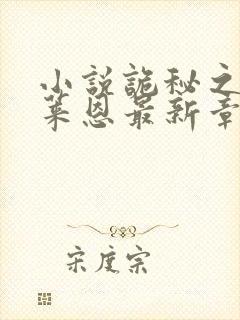 小说诡秘之
莱恩最新章
宋度宗